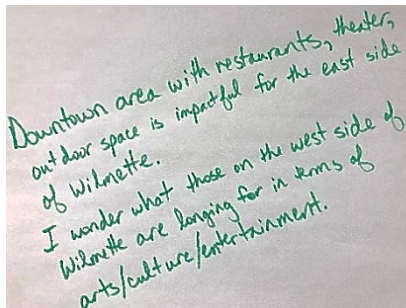 Downtown area with restaurants, theater,
outdoor space is impactful for the east side
of Wilmette.
I wonder what those on the west side of
Wilmette are longing for in terms of
arts/culture/entertainment.